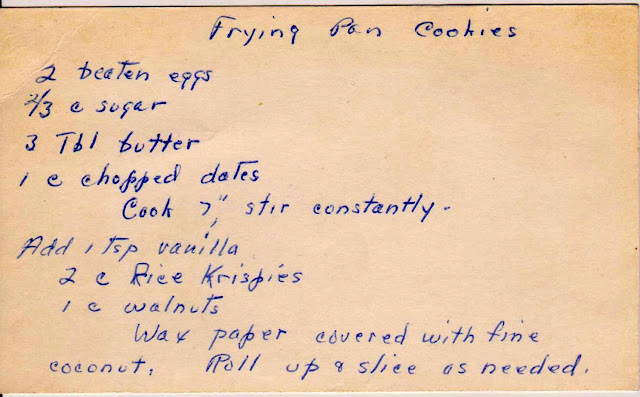 Frying Pan Cookies
2 beaten eggs
2/3 c sugar
3 Tbl butter
1 c chopped dates
Cook 7", stir constantly.
Add 1 tsp vanilla
2 c Rice Krispies
1 c walnuts
Wax paper covered with fine
coconut. Roll up & slice as needed.